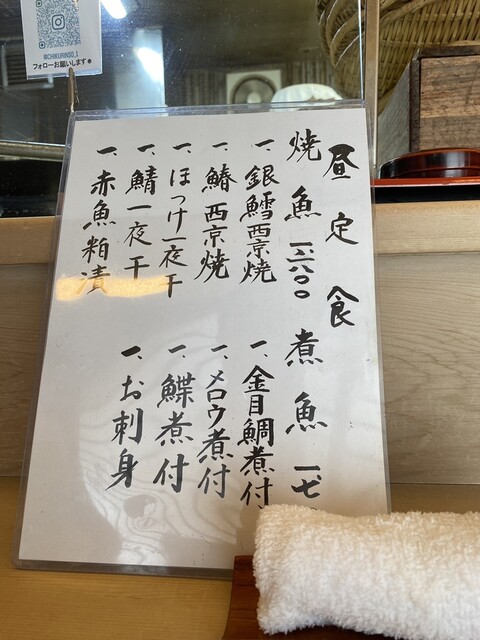 @CHIKURINSO_1
フォローお願いします
昼定食
焼魚 一、六〇〇
一、銀鱈西京焼
一、鰆西京焼
一、ほっけ一夜干
一、鯖一夜干
一、赤魚粕漬
煮魚 一、七
一、金目鯛煮付
一、メロウ煮付
一、鰈煮付
一、お刺身